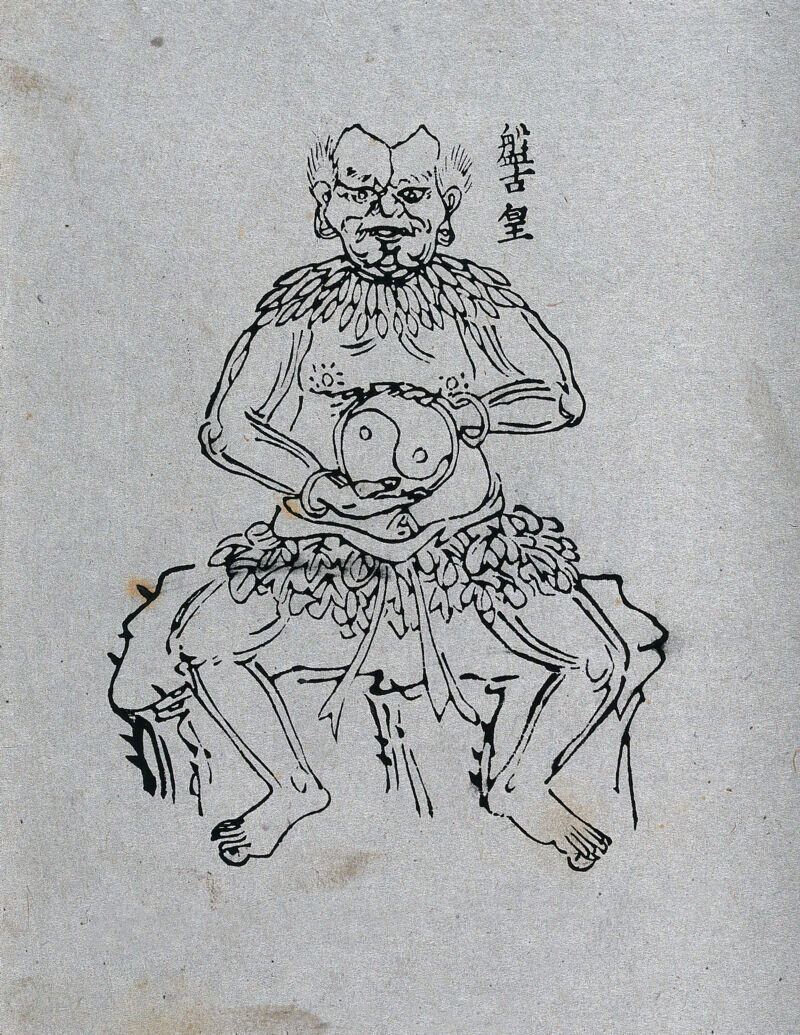 盤古皇